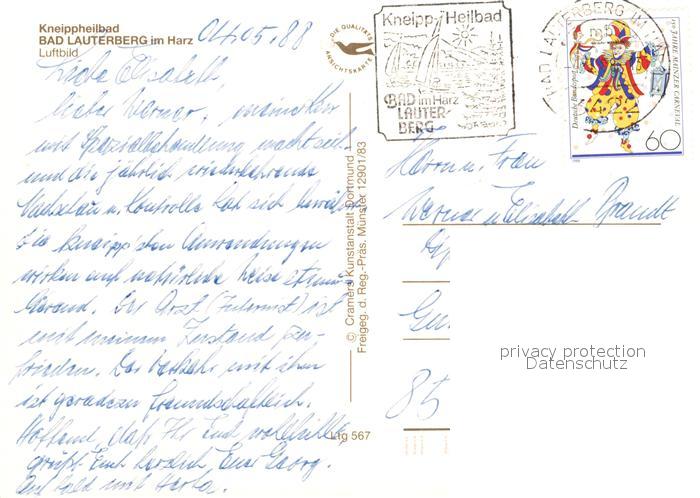 Kneippheilbad
BAD LAUTERBERG im Harz
Luftbild
04.05.88
Liebe Elisabeth,
lieber Werner, meine Kur
mit Spezialbehandlung macht sich
und die jährlich wiederkehrende
u. Kontrolle hat sich bewährt
Die Kneipp'schen Anwendungen
wirken auf natürliche Weise
Der Arzt (Internist) ist
mit meinem Zustand zu-
frieden. Der Verkehr mit ihm
ist geradezu freundschaftlich.
Hoffend, daß Ihr Euch wohlfühlt
grüßt Euch herzlich Euer Georg.
Auf bald mit Herta.
DIE QUALITÄTS
ANSICHTSKARTE
© Cramers Kunstanstalt Dortmund
Freigeg. d. Reg.-Präs. Münster 12901/83
Ltg 567
Kneipp-Heilbad
BAD im Harz
LAUTER-
BERG
BAD LAUTERBERG IM
Deutsche Bundespost
150 JAHRE MAINZER CARNEVAL
60
Herrn u. Frau
Werner u. Elisabeth Brandt
85
privacy protection
Datenschutz